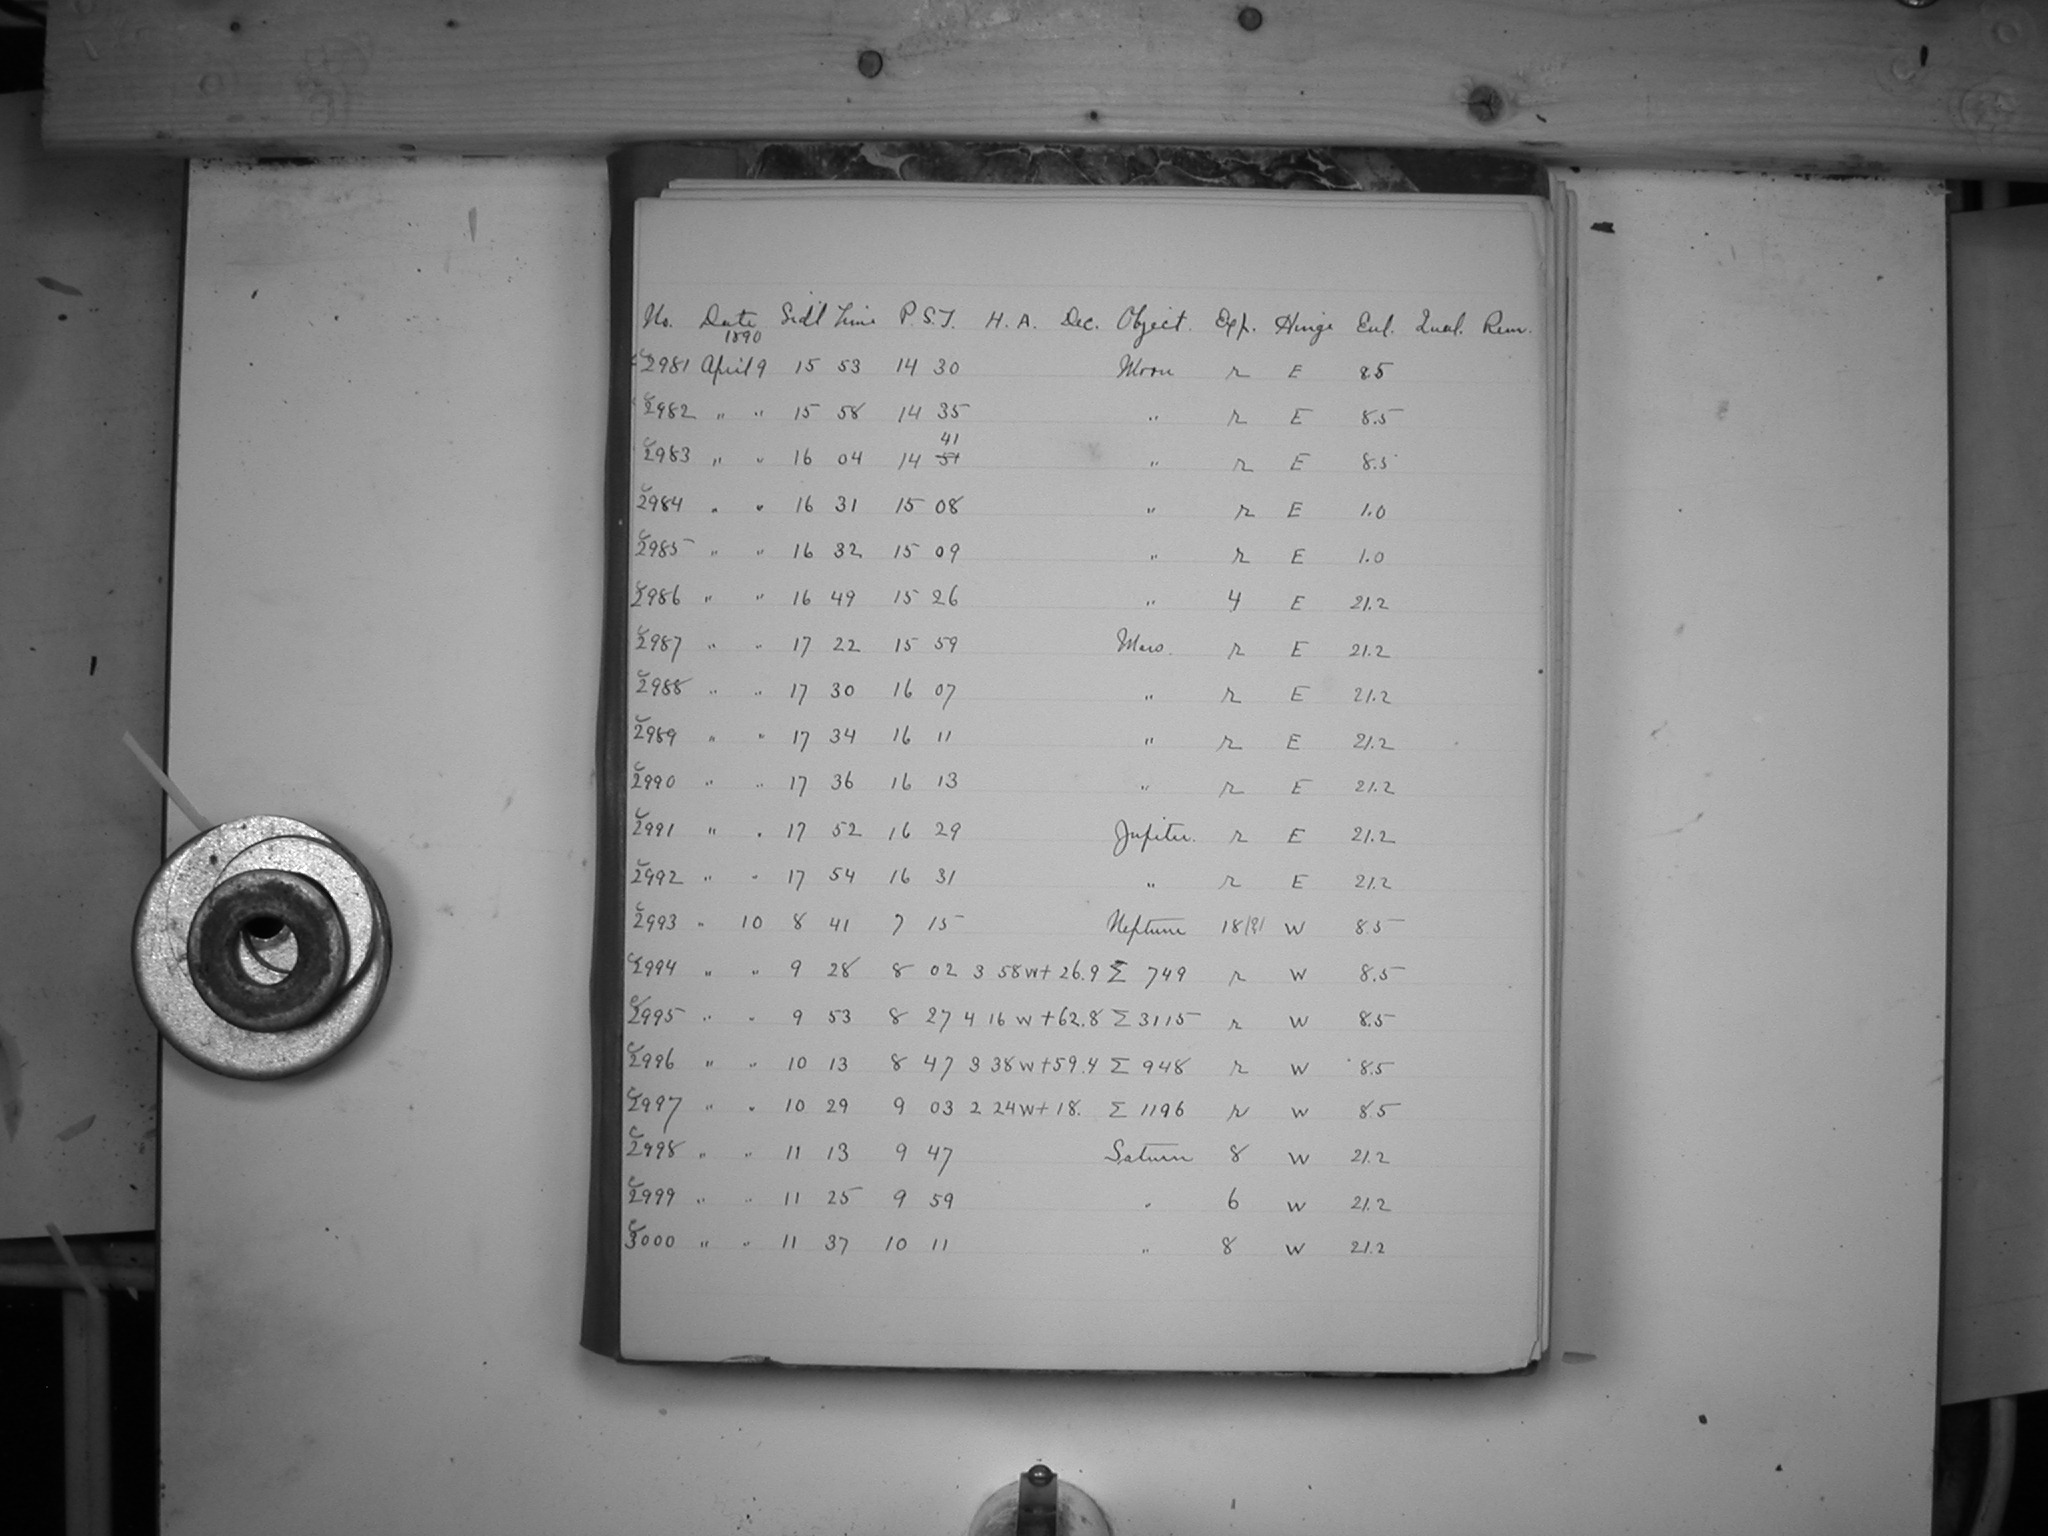 No. Date Sid'l Time P.S.T. H.A. Dec. Object. Exp. Hinge Enl. Qual. Rem.
1890
C2981 April 9 15 53 14 30 Moon r E 8.5
C2982 " " 15 58 14 35 " r E 8.5
41
C2983 " " 16 04 14 51 " r E 8.5
C2984 " " 16 31 15 08 " r E 1.0
C2985 " " 16 32 15 09 " r E 1.0
C2986 " " 16 49 15 26 " 4 E 21.2
C2987 " " 17 22 15 59 Mars. r E 21.2
C2988 " " 17 30 16 07 " r E 21.2
C2989 " " 17 34 16 11 " r E 21.2
C2990 " " 17 36 16 13 " r E 21.2
C2991 " " 17 52 16 29 Jupiter. r E 21.2
C2992 " " 17 54 16 31 " r E 21.2
C2993 " 10 8 41 7 15 Neptune W 8.5
C2994 " " 9 28 8 02 3 58 W + 26.9 Σ 749 r W 8.5
C2995 " " 9 53 8 27 4 16 W + 62.8 Σ 3115 r W 8.5
C2996 " " 10 13 8 47 3 38 W + 59.4 Σ 948 r W 8.5
C2997 " " 10 29 9 03 2 24 W + 18. Σ 1196 r W 8.5
C2998 " " 11 13 9 47 Saturn 8 W 21.2
C2999 " " 11 25 9 59 " 6 W 21.2
C3000 " " 11 37 10 11 " 8 W 21.2